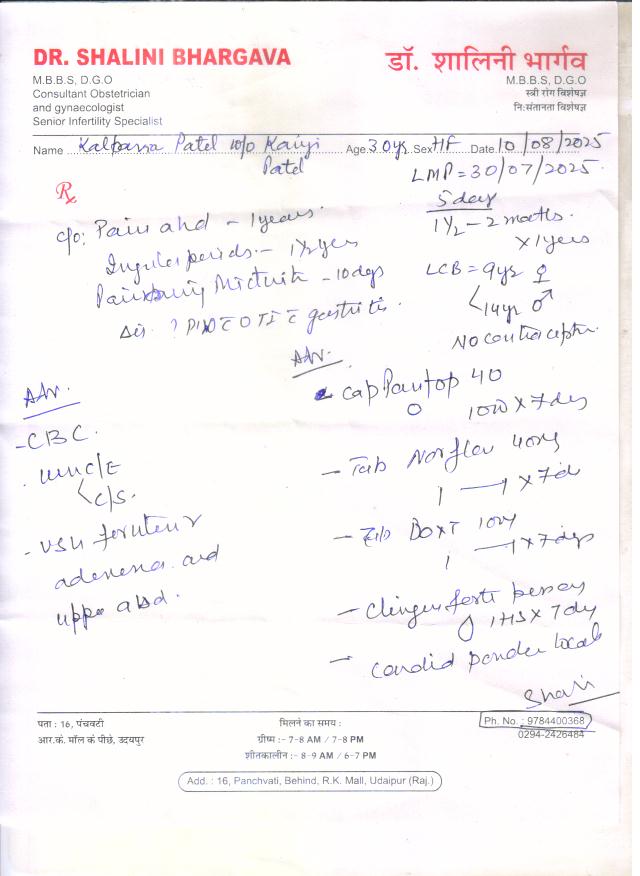 DR. SHALINI BHARGAVA
M.B.B.S, D.G.O
Consultant Obstetrician
and gynaecologist
Senior Infertility Specialist
डॉ. शालिनी भार्गव
M.B.B.S, D.G.O
स्त्री रोग विशेषज्ञ
नि:संतानता विशेषज्ञ
Name Kalpana Patel w/o Patel Age 30yr Sex HF Date 10/08/2025
LMP = 30/07/2025
Rx
5 day
1½ - 2 months
x 1 years
c/o: Pain abd - 1 years
periods - 1½ yrs
- 10 days
LCB = 9yr ♀
14yr ♂
? PID gastritis
No
Adv.
Cap Pantop 40
1 OD x 7 days
- Tab Norflox 40
1 — 1 x 7 d
- Tab Doxt 10
1 — 1 x 7 days
- forte
1 HS x 7 day
- Candid powder local
Adv.
- CBC
C/S.
- USG for uterus
adenexa and
upper abd.
Shalini
पता : 16, पंचवटी
आर.के. मॉल के पीछे, उदयपुर
मिलने का समय :
ग्रीष्म :- 7-8 AM / 7-8 PM
शीतकालीन :- 8-9 AM / 6-7 PM
Ph. No. : 9784400368
0294-2426484
Add. : 16, Panchvati, Behind, R.K. Mall, Udaipur (Raj.)